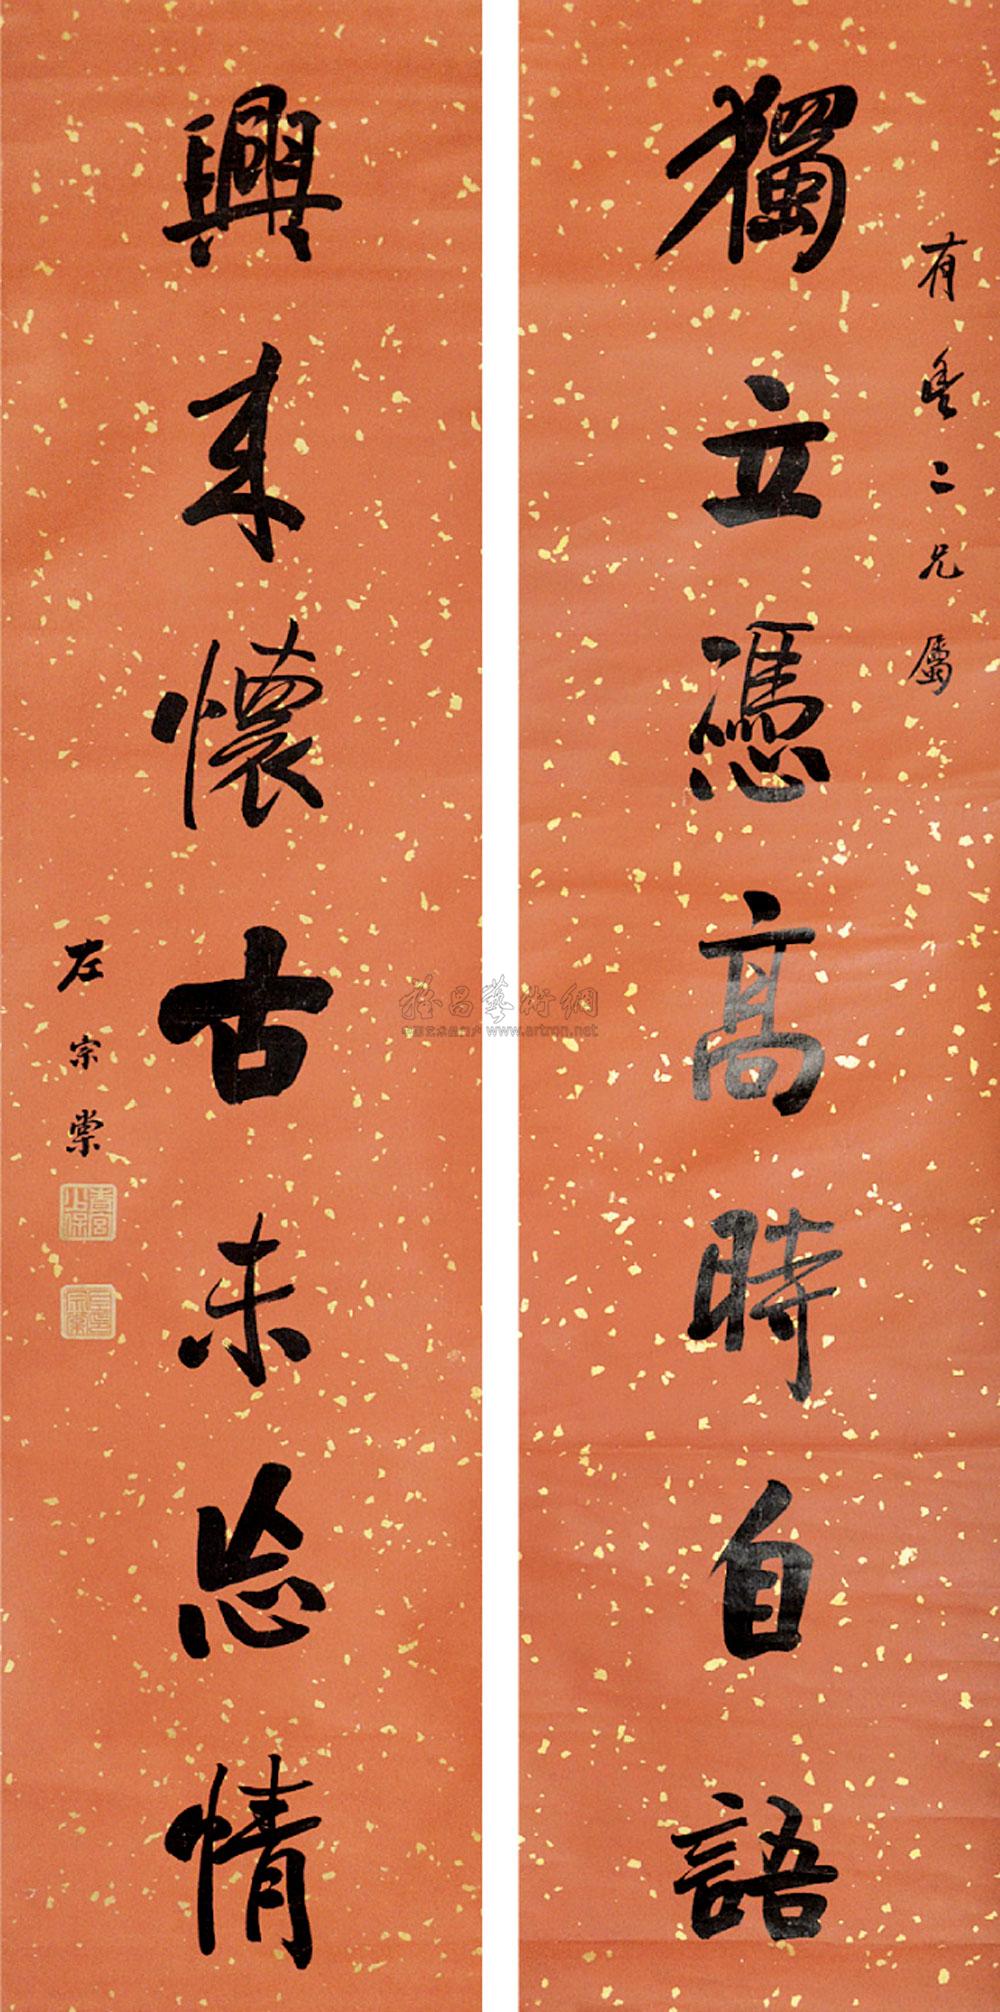 有豊二兄屬
獨立憑高時自語
興來懷古未忘情
左宗棠
青宮少保
雅昌藝術網
www.artron.net